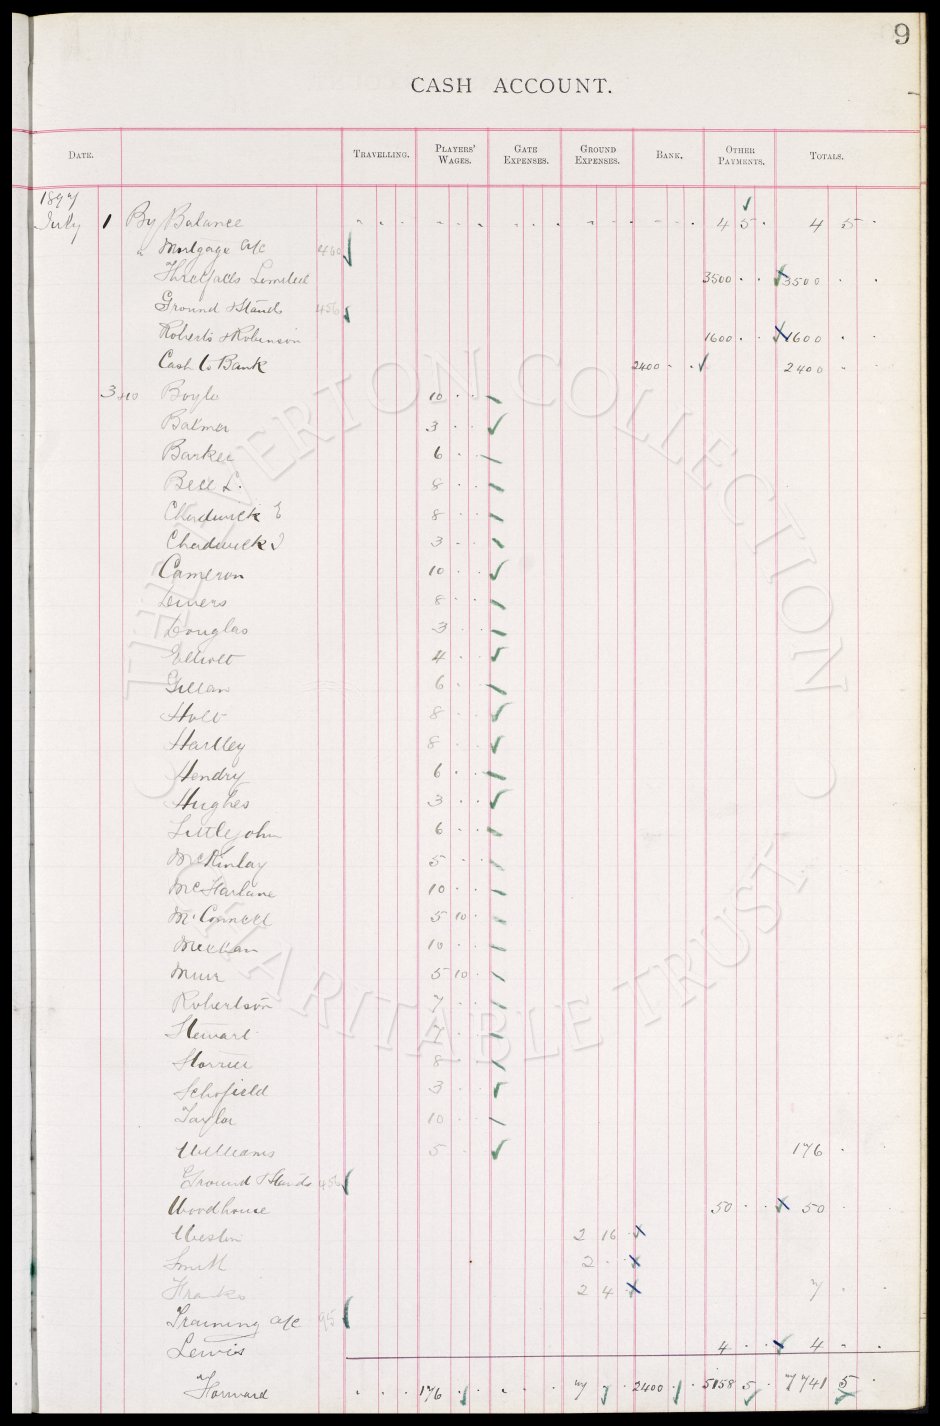 9
CASH ACCOUNT.
DATE. TRAVELLING. PLAYERS' WAGES. GATE EXPENSES. GROUND EXPENSES. BANK. OTHER PAYMENTS. TOTALS.
1897
July 1 By Balance 4 5 4 5
" Mortgage a/c 460
Threlfalls Limited 3500 3500
Ground & Stands 456
Roberts & Robinson 1600 1600
Cash to Bank 2400 2400
3 Boyle 10
Balmer 3
Barker 6
Bell L. 8
Chadwick E 8
Chadwick J 3
Cameron 10
Divers 8
Douglas 3
Elliott 4
Gillan 6
Holt 8
Hartley 8
Hendry 6
Hughes 3
Littlejohn 6
McKinlay 5
McFarlane 10
McConnell 5 10
Meehan 10
Muir 5 10
Robertson 7
Stewart 7
Storrier 8
Schofield 3
Taylor 10
Williams 5 176
Ground & Stands 456
Woodhouse 50 50
Weston 2 16
Smith 2
Franks 2 4 7
Training a/c 95
Lewis 4 4
Forward 176 7 2400 5158 5 7741 5
THE EVERTON COLLECTION
CHARITABLE TRUST